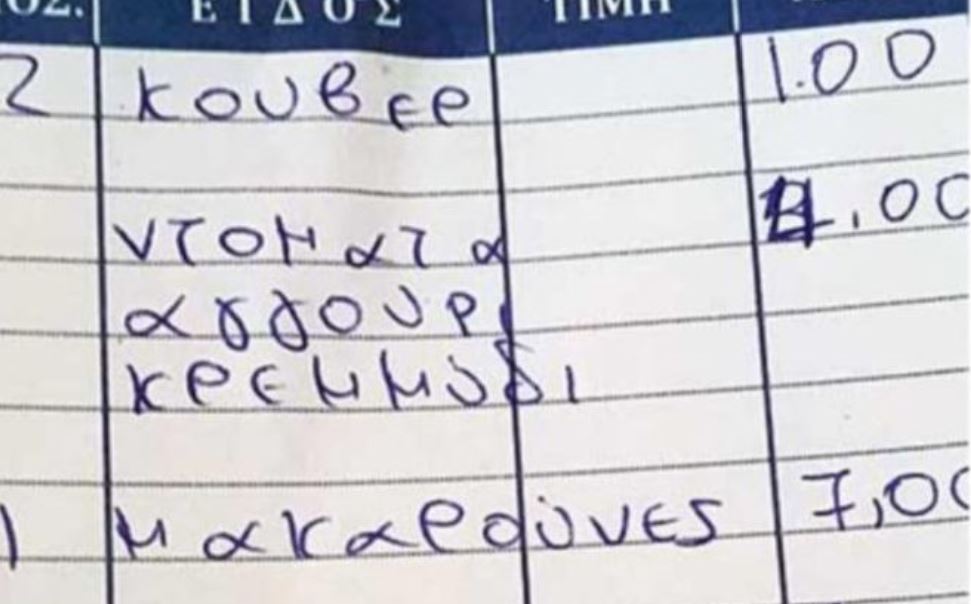 ΠΟΣ. ΕΙΔΟΣ ΤΙΜΗ
2 κουβερ 1.00
ντοματα 4,00
αγγουρι
κρεμμυδι
1 μακαρουνες 7,00